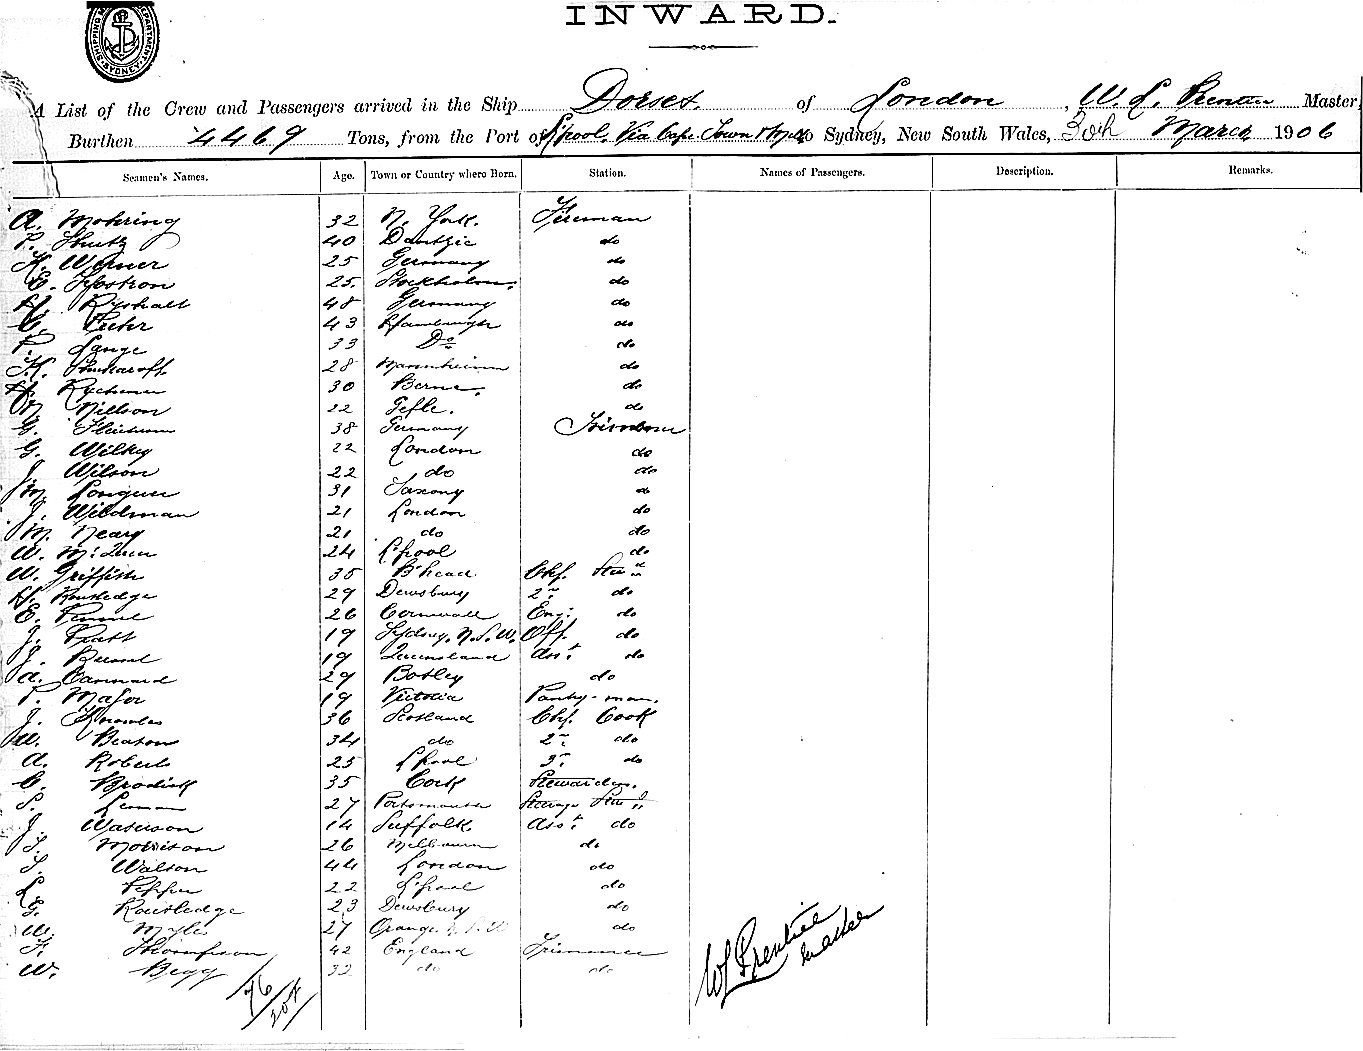 SHIPPING MASTER'S DEPARTMENT SYDNEY
INWARD.
A List of the Crew and Passengers arrived in the Ship Dorset of London, W. L. Prentice Master,
Burthen 4469 Tons, from the Port of L'pool Via Cape Town & to Sydney, New South Wales, 30th March 1906
Seamen's Names. Age. Town or Country where Born. Station. Names of Passengers. Description. Remarks.
A. Mohring 32 N. York. Fireman
P. 40 Dantzic do
K. Werner 25 Germany do
E. 25. Stockholm. do
H. 48 Germany do
C. 43 Hamburgh do
P. Lange 33 Do do
K. 28 Mannheim do
H. 30 Berne. do
N. Nillson 22 Gefle. do
G. 38 Germany Trimmer
G. Wilkey 22 London do
J. Wilson 22 do do
M. 31 Saxony do
J. Wildman 21 London do
M. Neary 21 do do
W. McQueen 24 L'pool do
W. Griffith 35 B'head Chf. Stwd
H. Routledge 29 Dewsbury 2nd do
E. 26 Cornwall Eng. do
J. Pratt 19 Sydney. N.S.W. Off. do
J. 19 Queensland Asst do
A. Cannard 29 Botley do
P. Major 19 Victoria Pantry-man.
J. Knowles 36 Scotland Chf. Cook
W. Beaton 34 do 2nd do
A. Roberts 25 L'pool 3rd do
C. Brodick 35 Cork Stewardess.
S. 27 Portsmouth Steerage Stwd
J. Waterson 14 Suffolk Asst do
T. Morrison 26 Melbourne do
T. Walton 44 London do
L. Pepper 22 L'pool do
G. Routledge 23 Dewsbury do
W. Myles 27 Orange N.S.W do
F. Thompson 42 England Trimmer
W. Begg 32 do do
76
WL Prentice
Master